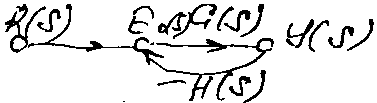 R(s) E(s) G(s) Y(s)
-H(s)